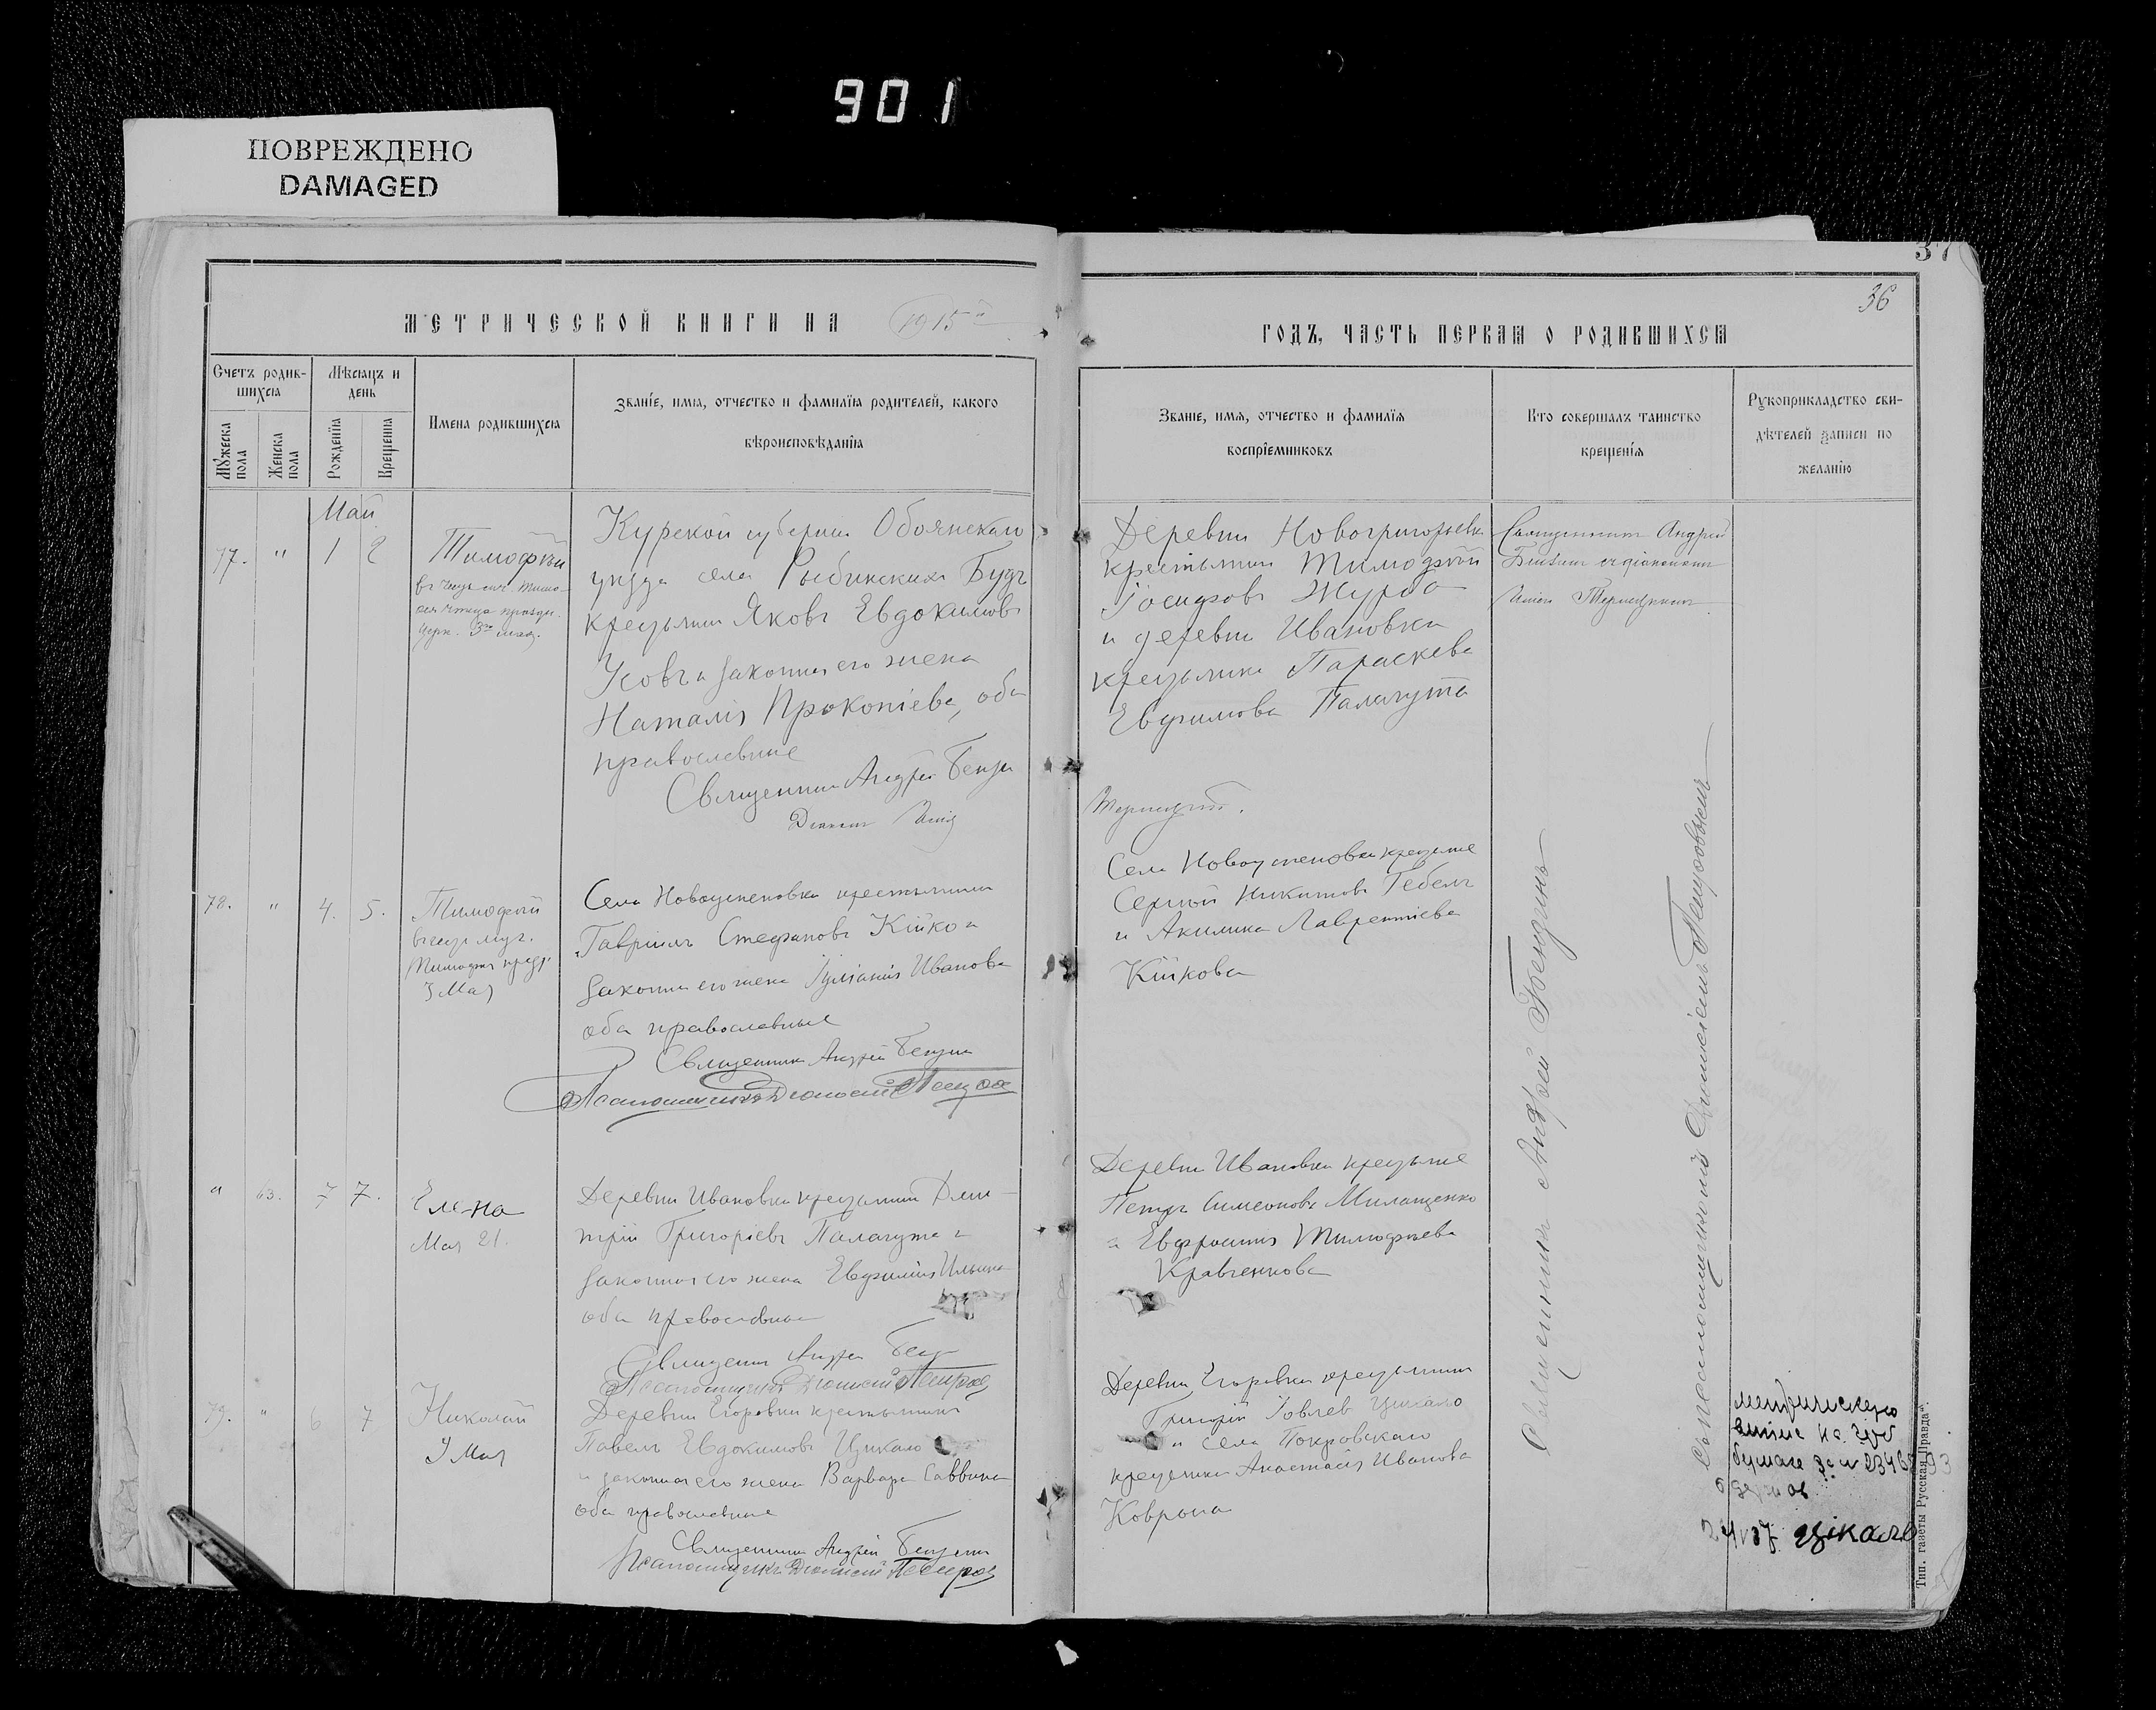 901
ПОВРЕЖДЕНО
DAMAGED
37
36
МЕТРИЧЕСКОЙ КНИГИ НА 1915й
ГОДЪ, ЧАСТЬ ПЕРВАЯ О РОДИВШИХСЯ
Счетъ родив-
шихся
Мужеска
пола
Женска
пола
Мѣсяцъ и
день
Рожденїя
Крещенїя
Имена родившихся
Званїе, имя, отчество и фамилїя родителей, какого
вѣроисповѣданїя
Званїе, имя, отчество и фамилїя
воспрїемниковъ
Кто совершалъ таинство
крещенїя
Рукоприкладство сви-
дѣтелей записи по
желанїю
Май
77. " 1 2
Тимофѣй
Курской губернiи Обоянскаго
уѣзда села Рыбинскихъ Будъ
крестьянинъ Яковъ Евдокимовъ
Усовъ и законная его жена
Наталiя Прокопiева, оба
православные
Священникъ Андрей Бензинъ
Дiаконъ
Деревни Новогригорьевки
крестьянинъ Тимофѣй
Iосифовъ Журба
и деревни Ивановки
крестьянка Параскева
Евфимова Палагута
Священникъ Андрей
Бензинъ съ дiакономъ
78. " 4. 5.
Тимофѣй
3 Мая
Села Новоуспеновки крестьянинъ
Гаврiилъ Стефановъ Кiйко и
законная его жена Iулiанiя Иванова
оба православные
Священникъ Андрей Бензинъ
Псаломщикъ Дiонисiй Петровъ
Села Новоуспеновки крестьяне
Сергѣй Никитовъ Гебель
и Акилина Лаврентiева
Кiйкова
" 63. 7 7.
Елена
Мая 21.
Деревни Ивановки крестьянинъ Дми-
трiй Григорiевъ Палагута и
законная его жена Евфимiя Ильина
оба православные
Священникъ Андрей Бензинъ
Псаломщикъ Дiонисiй Петровъ
Деревни Ивановки крестьяне
Петръ Симеоновъ Милащенко
и Евфросинiя Тимофѣева
Кравченкова
79. " 6 7
Николай
9 Мая
Деревни Егоровки крестьянинъ
Павелъ Евдокимовъ Цикало
и законная его жена Варвара Саввина
оба православные
Священникъ Андрей Бензинъ
Псаломщикъ Дiонисiй Петровъ
Деревни Егоровки крестьянинъ
Григорiй Iовлевъ Цикало
и села Покровскаго
крестьянка Анастасiя Иванова
Коврова
Священникъ Андрей Бензинъ
съ псаломщикомъ Дiонисiемъ Петровымъ
цiкало
Тип. газеты „Русская Правда“.